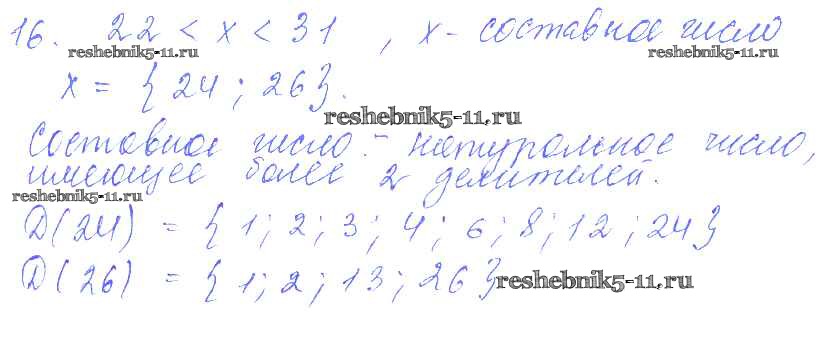 16. 22 < x < 31 , x - составное число
reshebnik5-11.ru reshebnik5-11.ru
x = {24 ; 26}.
reshebnik5-11.ru
Составное число - натуральное число,
имеющее более 2 делителей.
reshebnik5-11.ru
D(24) = {1; 2; 3; 4; 6; 8; 12; 24}
D(26) = {1; 2; 13; 26}
reshebnik5-11.ru